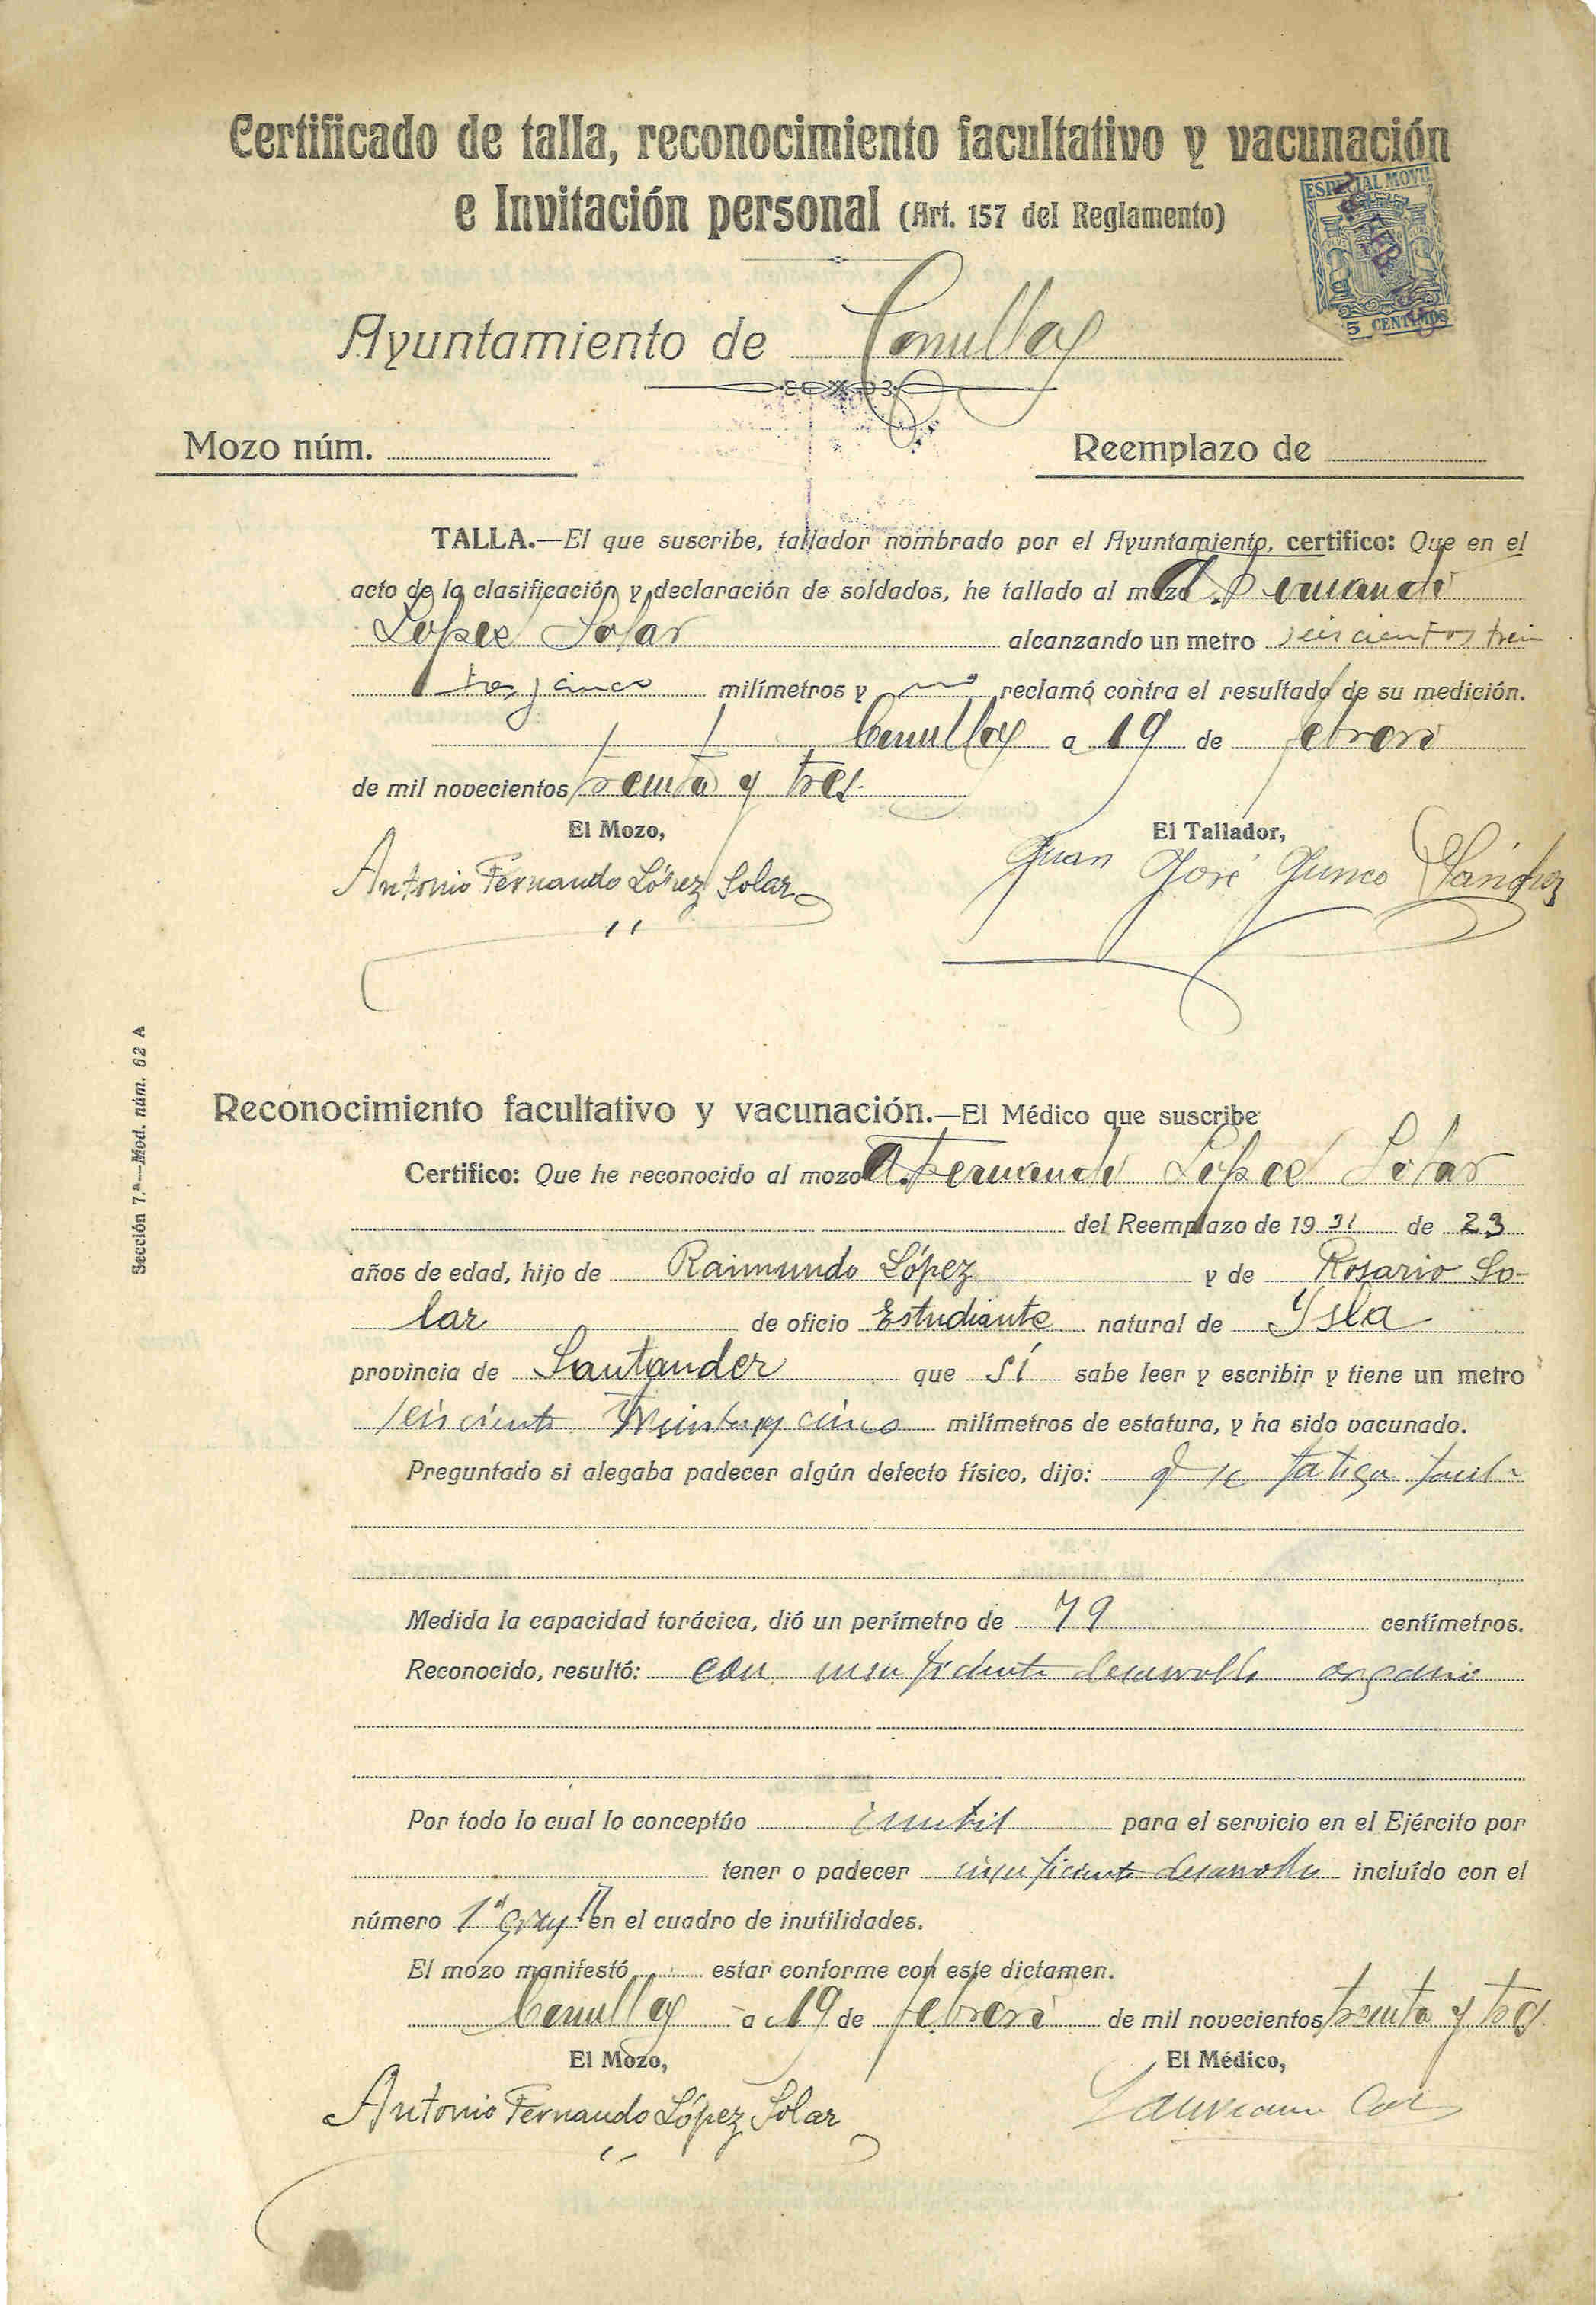 Certificado de talla, reconocimiento facultativo y vacunación
e Invitación personal (Art. 157 del Reglamento)
ESPECIAL MOVIL
5 CENTIMOS
Ayuntamiento de Comillas
Mozo núm.
Reemplazo de
TALLA.—El que suscribe, tallador nombrado por el Ayuntamiento, certifico: Que en el
acto de la clasificación y declaración de soldados, he tallado al mozo A. Fernando
López Solar alcanzando un metro seiscientos trein
ta y cinco milímetros y no reclamó contra el resultado de su medición.
Comillas a 19 de febrero
de mil novecientos treinta y tres
El Mozo,
El Tallador,
Antonio Fernando López Solar
Juan José Junco Sánchez
Sección 7.ª—Mod. núm. 62 A
Reconocimiento facultativo y vacunación.—El Médico que suscribe
Certifico: Que he reconocido al mozo A. Fernando López Solar
del Reemplazo de 1931 de 23
años de edad, hijo de Raimundo López y de Rosario So-
lar de oficio Estudiante natural de Ysla
provincia de Santander que sí sabe leer y escribir y tiene un metro
seiscientos treinta y cinco milímetros de estatura, y ha sido vacunado.
Preguntado si alegaba padecer algún defecto físico, dijo: q se fatiga facil
Medida la capacidad torácica, dió un perímetro de 79 centímetros.
Reconocido, resultó: con insuficiente desarrollo organico
Por todo lo cual lo conceptúo inutil para el servicio en el Ejército por
tener o padecer insuficiente desarrollo incluído con el
número 1º en el cuadro de inutilidades.
El mozo manifestó estar conforme con este dictamen.
Comillas a 19 de febrero de mil novecientos treinta y tres
El Mozo,
El Médico,
Antonio Fernando López Solar